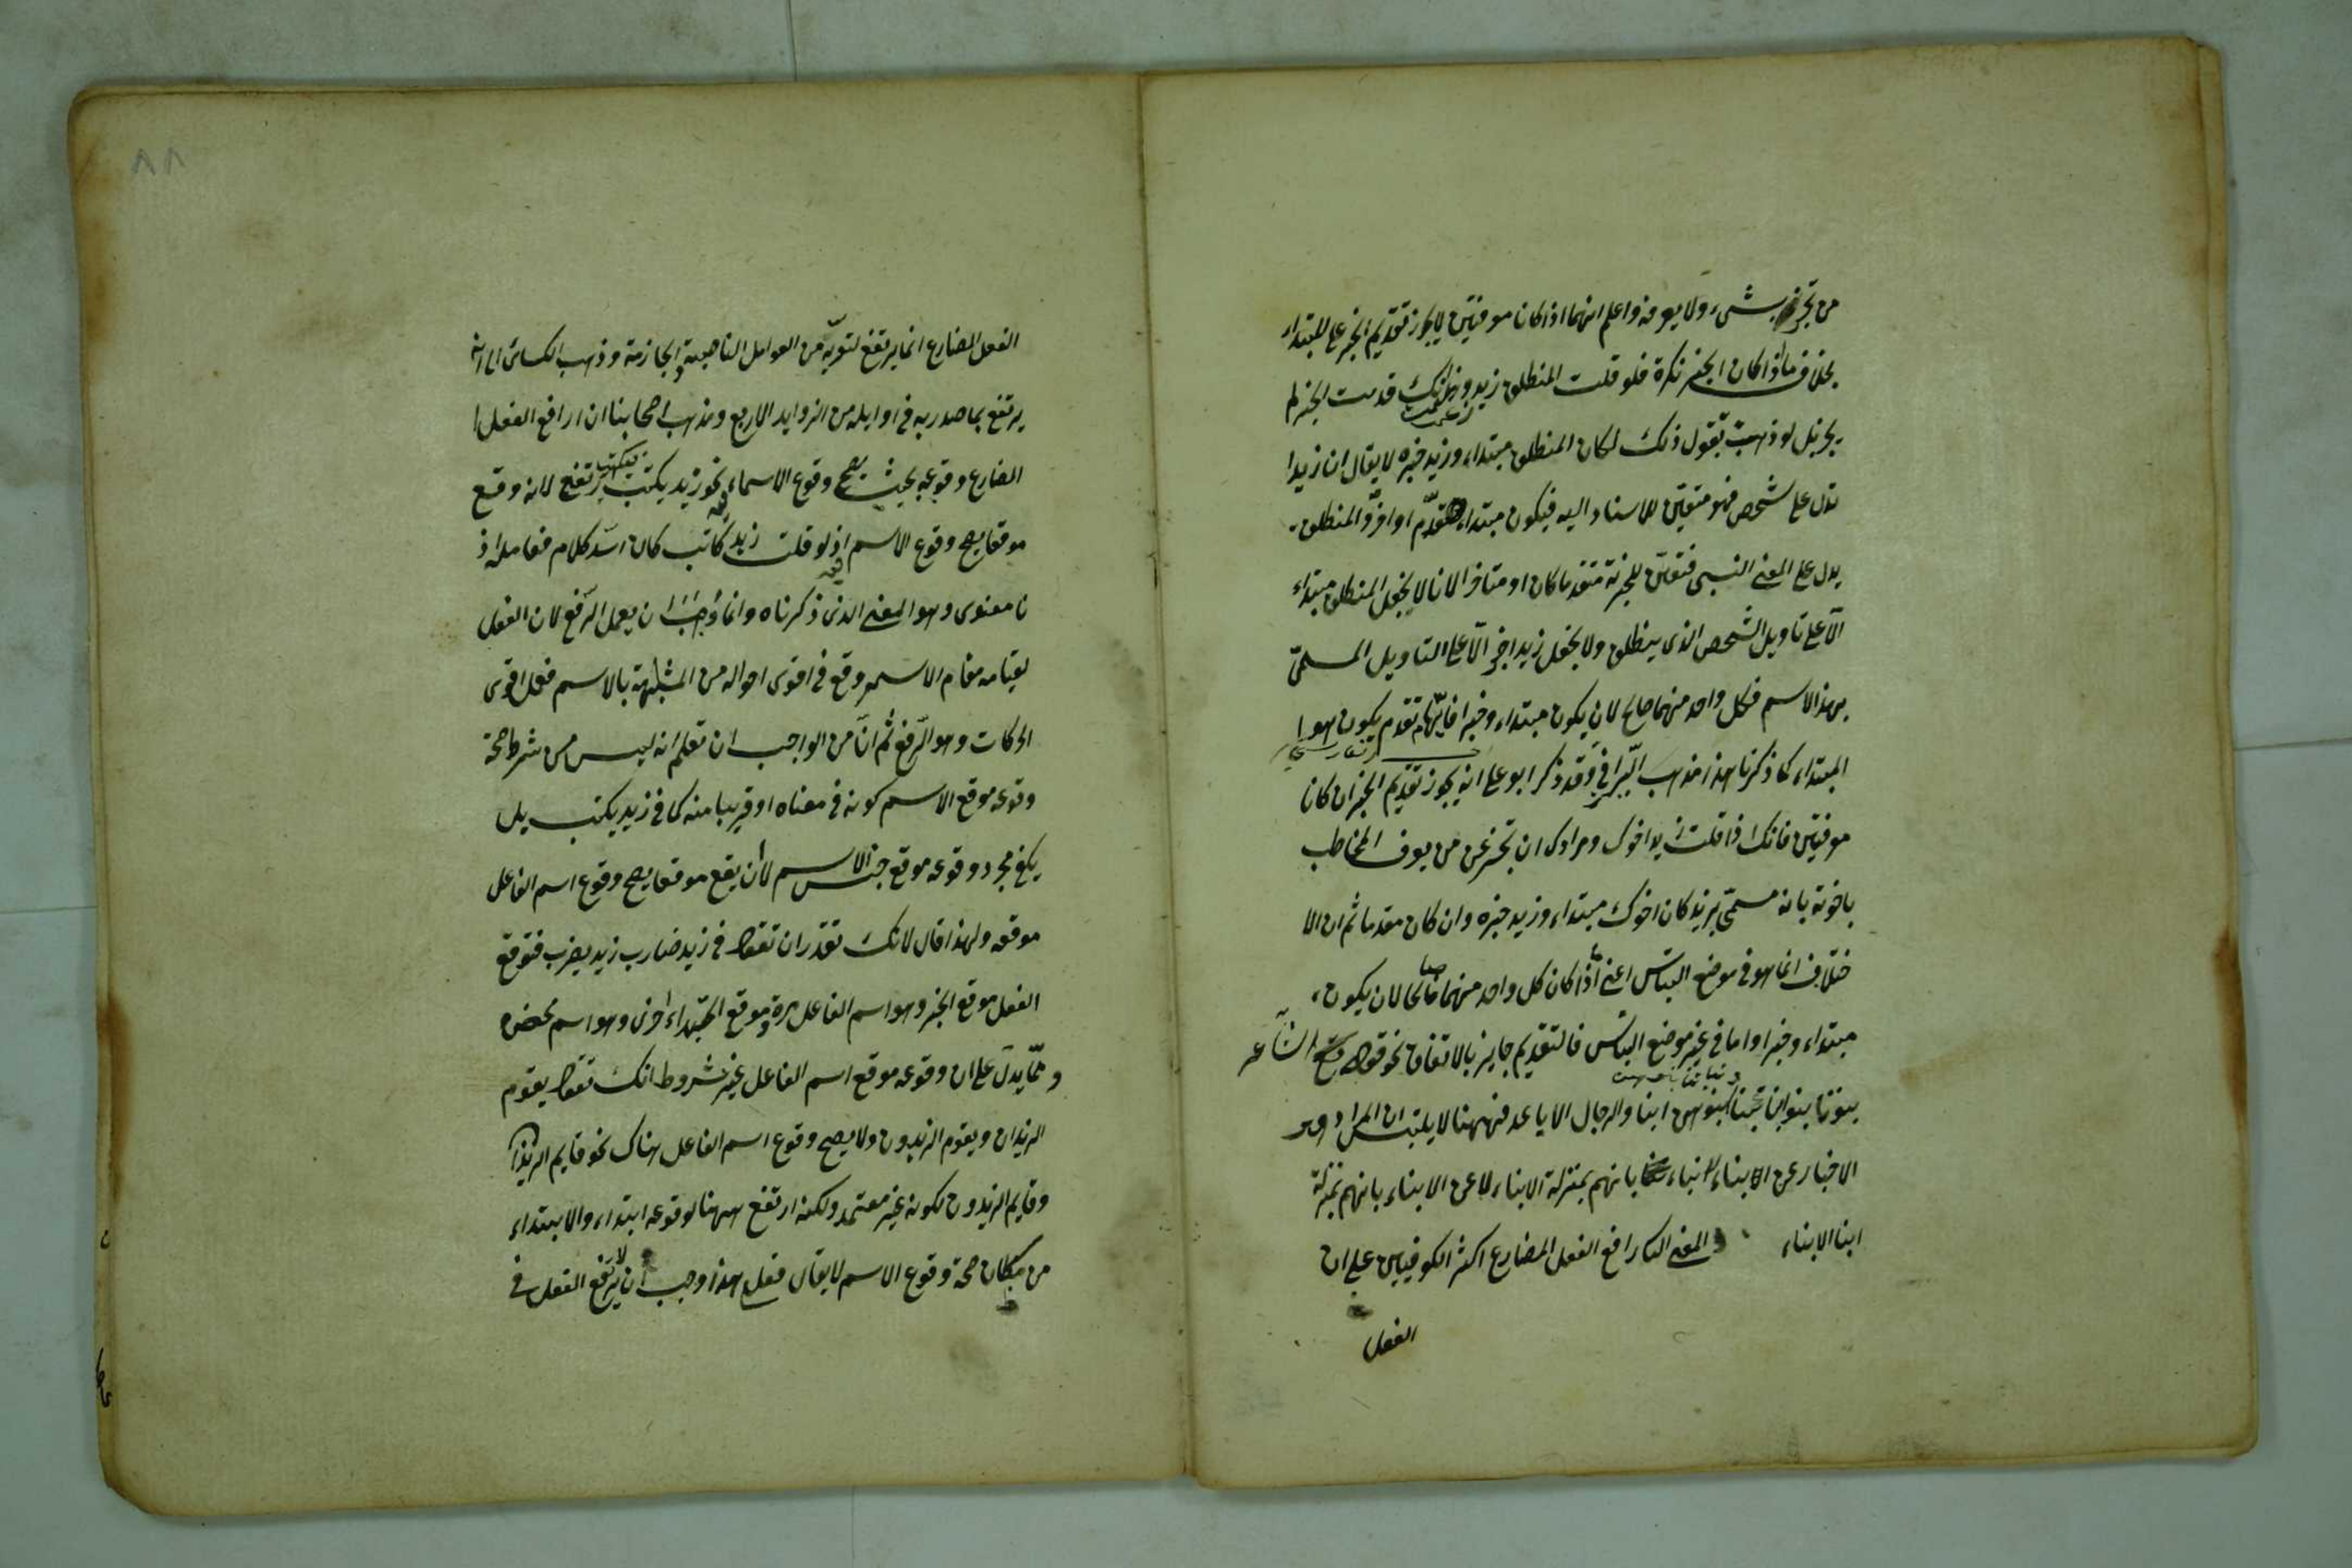 من تخبره بشىء ولا يعرفه واعلم انهما اذا كانا معرفتين لا يجوز تقديم الخبر على المبتداء
بخلاف ما اذا كان الخبر نكرة فلو قلت المنطلق زيد وزعمت انك قدمت الخبر لم
يجز بل لو ذهبت تقول ذلك لكان المنطلق مبتداء وزيد خبره لا يقال ان زيدا
تدل على شخص فهو متعين للاسناد اليه فيكون مبتداء تقدّم او اخرّ والمنطلق
يدل على المعنى النسبى فتعين للخبرية متقدما كان او متاخرا لانا لا نجعل المنطلق مبتداء
الّا على تاويل الشخص الذى ينطلق ولا نجعل زيدا خبرا الّا على التاويل المسمىّ
بهذا الاسم فكل واحد منهما صالح لان يكون مبتداء وخبرا فايّهما تقدم يكون هو ا
المبتداء كما ذكرنا هذا مذهب وقد ذكر ابو على انه يجوز تقديم الخبر ان كانا
معرفتين فانك اذا قلت زيد اخوك ومرادك ان تخبر عن من يعرف المخاطب
باخوته بانه مسمّى بزيد كان اخوك مبتداء وزيد خبره وان كان مقدما ثم ان الا
ختلاف انما هو فى موضع التباس اعنى ما اذا كان كل واحد منهما صالحا لان يكون
مبتداء وخبرا واما فى غير موضع التباس فالتقديم جايز بالاتفاق نحو قول الشاعر
بنونا بنو ابنائنا وبناتنا بنوهن ابناء الرجال الاباعد فههنا لا يلتبس ان المراد هو
الاخبار عن ابناء الابناء بانهم بمنزلة الابناء لا عن الابناء بانهم بمنزلة
ابنا الابناء المعنى الثا رافع الفعل المضارع اكثر الكوفيين على ان
الفعل
الفعل المضارع انما يرتفع لتعريه من العوامل الناصبة والجازمة وذهب الكسائى الى انه
يرتفع بما صدر به فى اوايله من الزوايد الاربع ومذهب اصحابنا ان رافع الفعل ا
المضارع وقوعه بحيث يصح وقوع الاسماء نحو زيد يكتب فيكتب يرتفع لانه وقع
موقعا يصح وقوع الاسم فيه اذ لو قلت زيد كاتب كان اسدّ كلام فعامله اذ
نا معنوى وهو المعنى الذى ذكرناه وانما وجب ان يعمل الرّفع لان الفعل
بقيامه مقام الاسم وقع فى اقوى احواله من المشابهة بالاسم فعمل اقوى
الحركات وهو الرّفع ثم انّ من الواجب ان تعلم انه ليس من شرط صحة
وقوعه موقع الاسم كونه فى معناه او قريبا منه كما فى زيد يكتب بل
يكفى مجرد وقوعه موقع جنس الاسم لا ان يقع موقعا يصح وقوع اسم الفاعل
موقعه ولهذا قال لانك تقدر ان تقول فى زيد ضارب زيد يضرب فتوقع
الفعل موقع الخبر وهو اسم الفاعل مرة وموقع المبتداء اخرى وهو اسم محض
وممّا يدل على ان وقوعه موقع اسم الفاعل غير مشروط انك تقول يقوم
الزيدان ويقوم الزيدون ولا يصح وقوع اسم الفاعل هناك نحو قايم الزيدان
وقايم الزيدون لكونه غير معتمد ولكنه ارتفع ههنا لوقوعه ابتداء والابتداء
من مكان صحة وقوع الاسم لا يقال فعلى هذا وجب ان لا يرتفع الفعل فى
٨٨